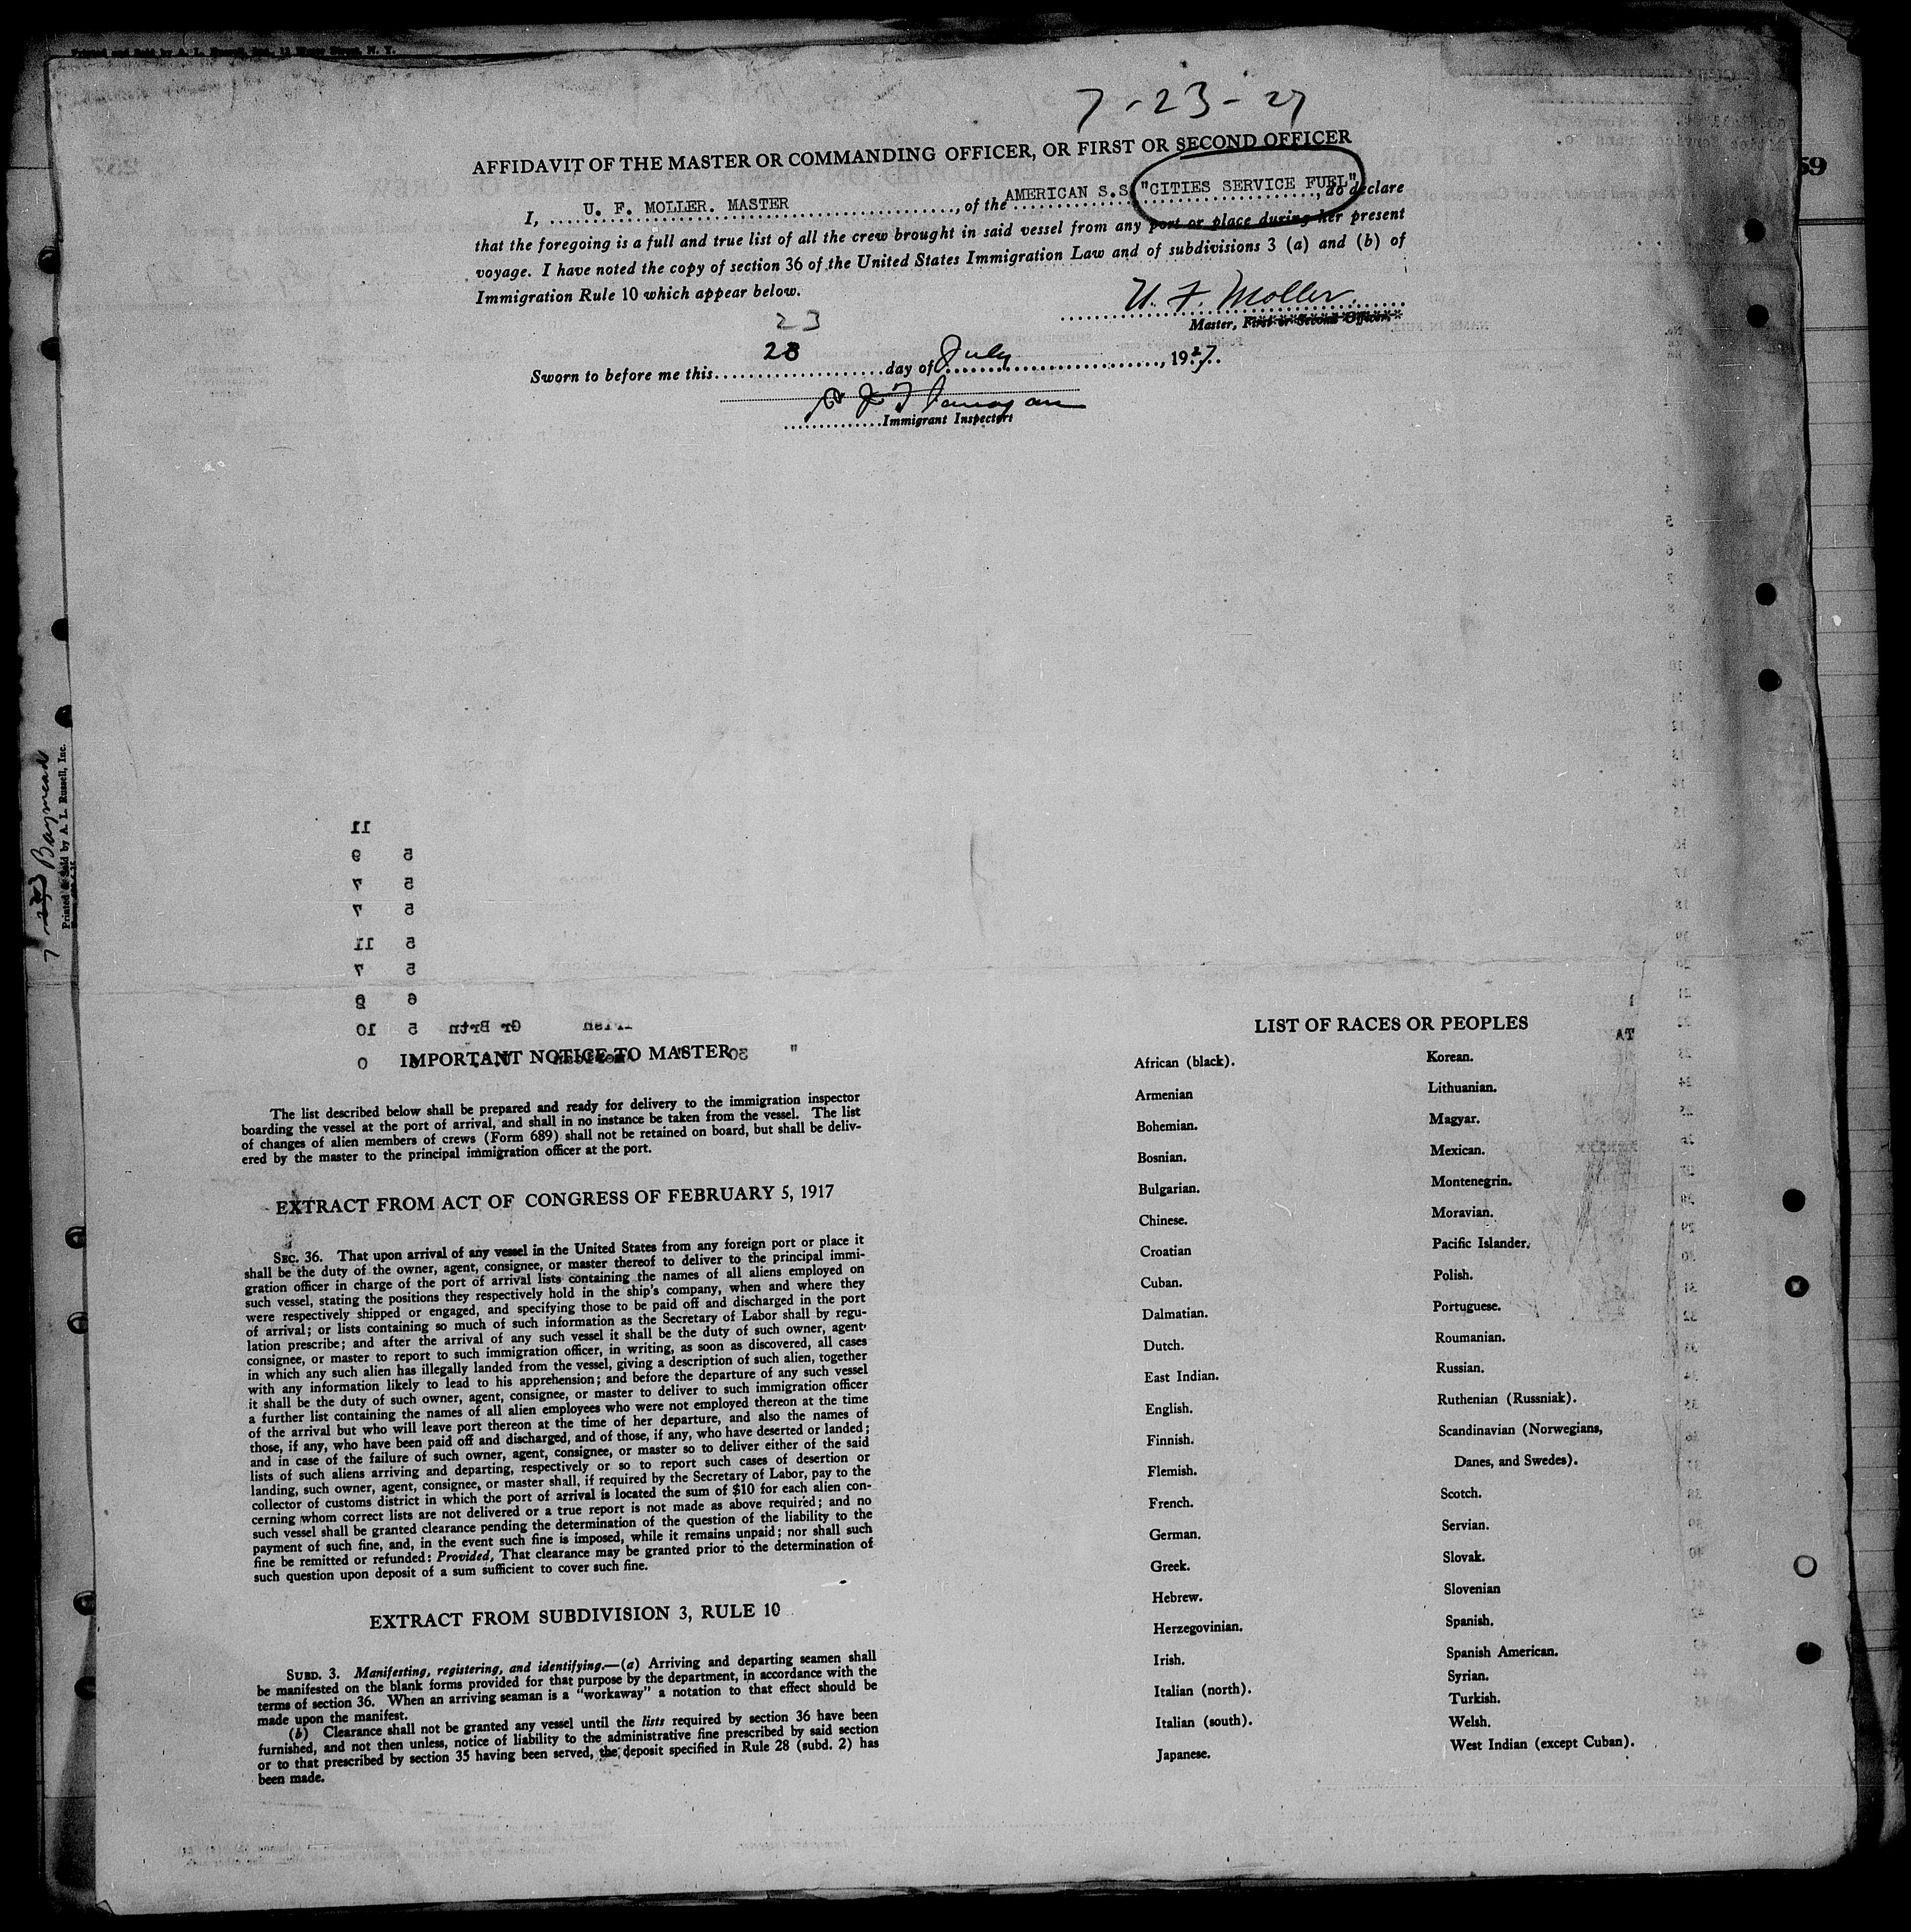 7-23-27
AFFIDAVIT OF THE MASTER OR COMMANDING OFFICER, OR FIRST OR SECOND OFFICER
I, U. F. MOLLER. MASTER, of the AMERICAN S.S. "CITIES SERVICE FUEL", do declare
that the foregoing is a full and true list of all the crew brought in said vessel from any port or place during her present
voyage. I have noted the copy of section 36 of the United States Immigration Law and of subdivisions 3 (a) and (b) of
Immigration Rule 10 which appear below.
U. F. Moller
Master, First or Second Officer.
23
Sworn to before me this 28 day of July, 1927.
Immigrant Inspector.
59
7 23 Baymead
Printed & Sold by A. L. Russell, Inc.
IMPORTANT NOTICE TO MASTER
The list described below shall be prepared and ready for delivery to the immigration inspector
boarding the vessel at the port of arrival, and shall in no instance be taken from the vessel. The list
of changes of alien members of crews (Form 689) shall not be retained on board, but shall be deliv-
ered by the master to the principal immigration officer at the port.
EXTRACT FROM ACT OF CONGRESS OF FEBRUARY 5, 1917
SEC. 36. That upon arrival of any vessel in the United States from any foreign port or place it
shall be the duty of the owner, agent, consignee, or master thereof to deliver to the principal immi-
gration officer in charge of the port of arrival lists containing the names of all aliens employed on
such vessel, stating the positions they respectively hold in the ship's company, when and where they
were respectively shipped or engaged, and specifying those to be paid off and discharged in the port
of arrival; or lists containing so much of such information as the Secretary of Labor shall by regu-
lation prescribe; and after the arrival of any such vessel it shall be the duty of such owner, agent,
consignee, or master to report to such immigration officer, in writing, as soon as discovered, all cases
in which any such alien has illegally landed from the vessel, giving a description of such alien, together
with any information likely to lead to his apprehension; and before the departure of any such vessel
it shall be the duty of such owner, agent, consignee, or master to deliver to such immigration officer
a further list containing the names of all alien employees who were not employed thereon at the time
of the arrival but who will leave port thereon at the time of her departure, and also the names of
those, if any, who have been paid off and discharged, and of those, if any, who have deserted or landed;
and in case of the failure of such owner, agent, consignee, or master so to deliver either of the said
lists of such aliens arriving and departing, respectively or so to report such cases of desertion or
landing, such owner, agent, consignee, or master shall, if required by the Secretary of Labor, pay to the
collector of customs district in which the port of arrival is located the sum of $10 for each alien con-
cerning whom correct lists are not delivered or a true report is not made as above required; and no
such vessel shall be granted clearance pending the determination of the question of the liability to the
payment of such fine, and, in the event such fine is imposed, while it remains unpaid; nor shall such
fine be remitted or refunded: Provided, That clearance may be granted prior to the determination of
such question upon deposit of a sum sufficient to cover such fine.
EXTRACT FROM SUBDIVISION 3, RULE 10
SUBD. 3. Manifesting, registering, and identifying.—(a) Arriving and departing seamen shall
be manifested on the blank forms provided for that purpose by the department, in accordance with the
terms of section 36. When an arriving seaman is a "workaway" a notation to that effect should be
made upon the manifest.
(b) Clearance shall not be granted any vessel until the lists required by section 36 have been
furnished, and not then unless, notice of liability to the administrative fine prescribed by said section
or to that prescribed by section 35 having been served, the deposit specified in Rule 28 (subd. 2) has
been made.
LIST OF RACES OR PEOPLES
African (black).
Armenian
Bohemian.
Bosnian.
Bulgarian.
Chinese.
Croatian
Cuban.
Dalmatian.
Dutch.
East Indian.
English.
Finnish.
Flemish.
French.
German.
Greek.
Hebrew.
Herzegovinian.
Irish.
Italian (north).
Italian (south).
Japanese.
Korean.
Lithuanian.
Magyar.
Mexican.
Montenegrin.
Moravian.
Pacific Islander.
Polish.
Portuguese.
Roumanian.
Russian.
Ruthenian (Russniak).
Scandinavian (Norwegians,
Danes, and Swedes).
Scotch.
Servian.
Slovak.
Slovenian
Spanish.
Spanish American.
Syrian.
Turkish.
Welsh.
West Indian (except Cuban).